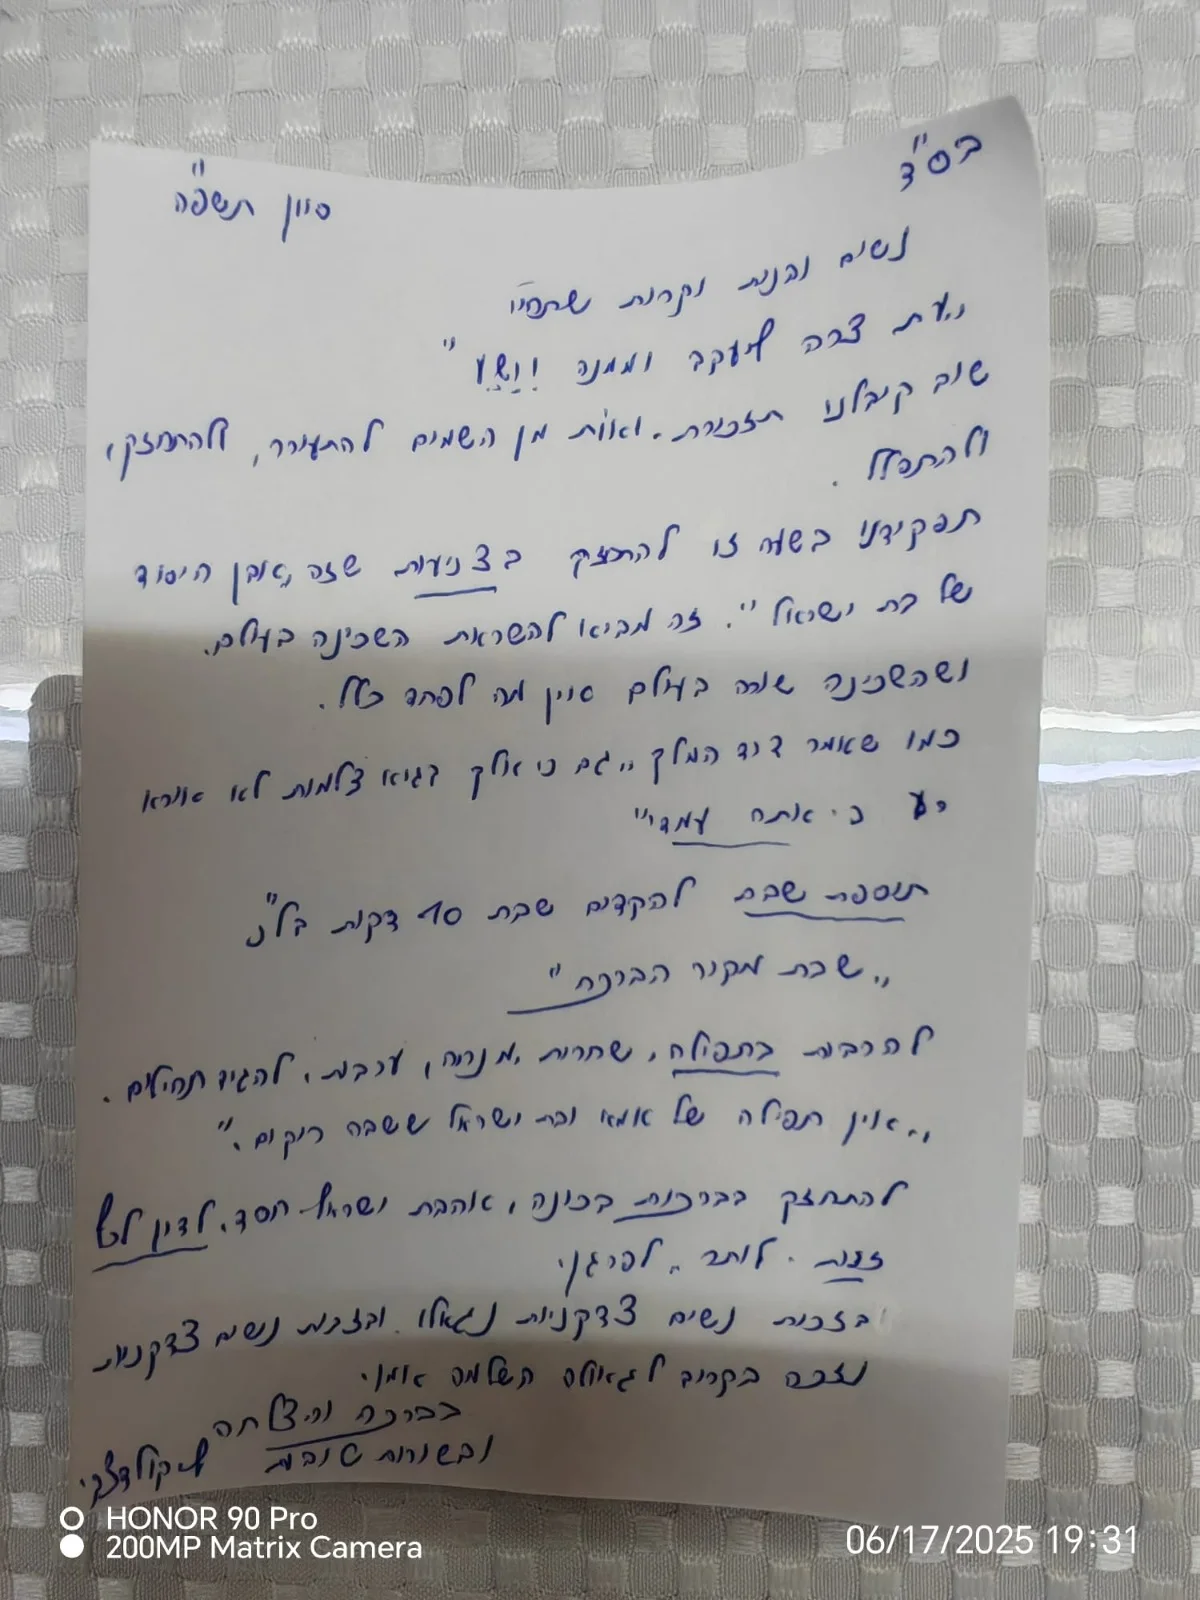 בס"ד
סיון תשפ"ה
נשים ובנות יקרות שתחיי
ועת צרה ליעקב וממנה יִוָשֵע"
שוב קיבלנו תזכורת. ואות מן השמים להתעורר, ולהתחזק,
ולהתפלל.
תפקידנו בשעה זו להתחזק בצניעות שזה „אבן היסוד
של בת ישראל". זה מביא להשראת השכינה בעולם.
ושהשכינה שורה בעולם אין מה לפחד כלל.
כמו שאמר דוד המלך „גם כי אלך בגיא צלמות לא אירא
רע כי אתה עמדי"
תוספת שבת להקדים שבת 10 דקות בל"נ
„שבת מקור הברכה"
להרבות בתפילה, שחרית, מנחה, ערבית, להגיד תהילים.
„אין תפילה של אמא ובת ישראל ששבה ריקם."
להתחזק בברכות בכוונה, אהבת ישראל חסד, לדון לכף
זכות. לוותר, לפרגן.
בזכות נשים צדקניות נגאלו. ובזכות נשים צדקניות
נזכה בקרוב לגאולה השלמה אמן.
בברכה והצלחה
ובשורות טובות